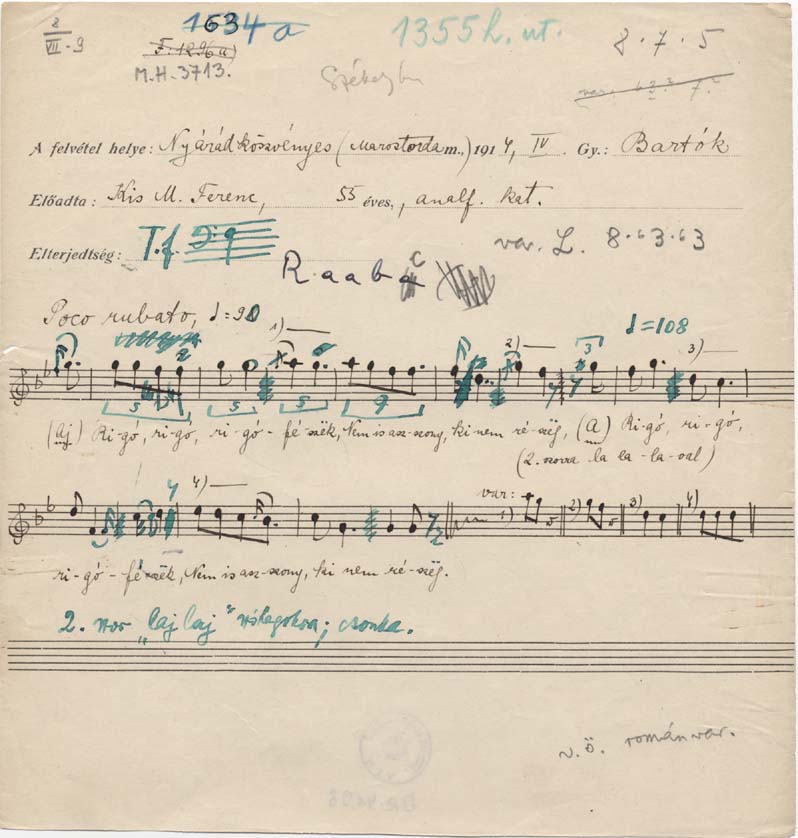 2 1634a 1355h. ut.
VII-9 F. 1296a) 8.7.5
M.H.-3713.
A felvétel helye: Nyárádköszvényes (Marostorda m.,) 1914, IV. Gy.: Bartók
Előadta: Kis M. Ferenc, 55 éves,, analf. kat.
Elterjedtség: T.f. var. L. 8.63.63
Raaba c
Poco rubato, = 90
1) 2) 3 = 108 3)
5 5 5 9
(Aj) Ri-gó, ri-gó, ri-gó-fé-szëk, Nem is asz-szony, ki nem ré-szëg, (A) Ri-gó, ri-gó,
(2. szorra la la-la-val)
4) var: 1) 2) 3) 4)
ri-gó-fészëk, Nem is asz-szony, ki nem ré-szëg.
2. vsz "laj laj" szótagokra; csonka.
v.ö. román var.